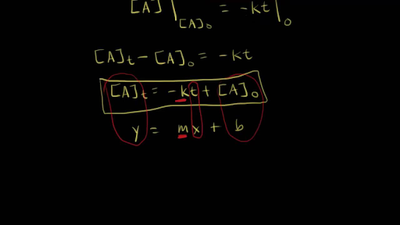 [A] |[A]₀ = -kt |₀
[A]t - [A]₀ = -kt
[A]t = -kt + [A]₀
y = mx + b